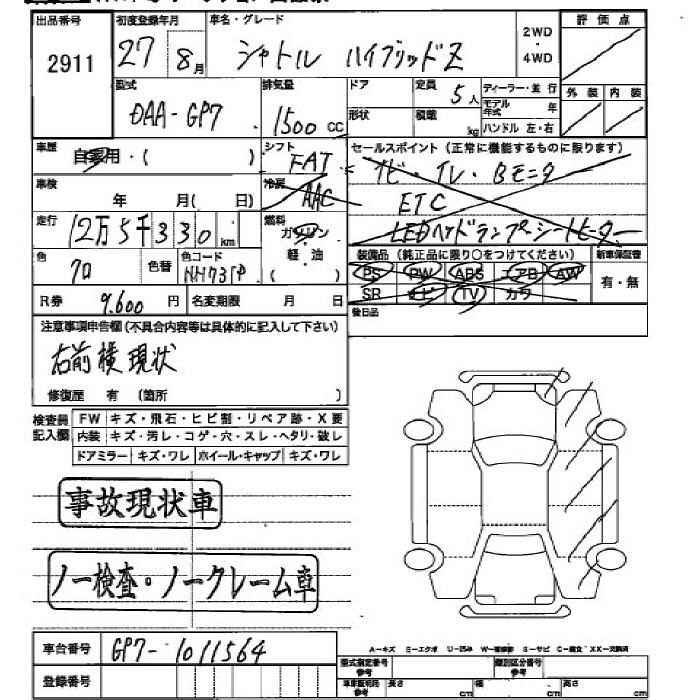 出品番号 初度登録年月 車名・グレード 評価点
2911 27 8月 シャトル ハイブリッドZ 2WD・4WD
型式 排気量 ドア 定員 ディーラー・並行 外装 内装
DAA-GP7 1500cc 5人 モデル年式 年
形状 積載 kg ハンドル 左・右
車歴 自家用・( ) シフト FAT セールスポイント (正常に機能するものに限ります)
ナビ・TV・Bモニタ
車検 年 月( 日) 冷房 AAC ETC
走行 12万5千330km 燃料 ガソリン 軽油 LEDヘッドランプ シートヒーター
色 クロ 色替 色コード NH731P 装備品 (純正品に限り○をつけてください) 新車保証書
PS PW ABS エアB AW 有・無
R券 9,600円 名変期限 月 日 SR ナビ TV カワ
後日品
注意事項申告欄(不具合内容等は具体的に記入して下さい)
右前横現状
修復歴 有 (箇所 )
検査員記入欄 FW キズ・飛石・ヒビ割・リペア跡・X要
内装 キズ・汚レ・コゲ・穴・スレ・ヘタリ・破レ
ドアミラー キズ・ワレ ホイール・キャップ キズ・ワレ
事故現状車
ノー検査・ノークレーム車
車台番号 GP7-1011564
A-キズ E-エクボ U-凹み S-サビ XX-交換済
登録番号
型式指定番号 参考 類別区分番号 参考
車庫証明用 参考 長さ cm 幅 cm 高さ cm